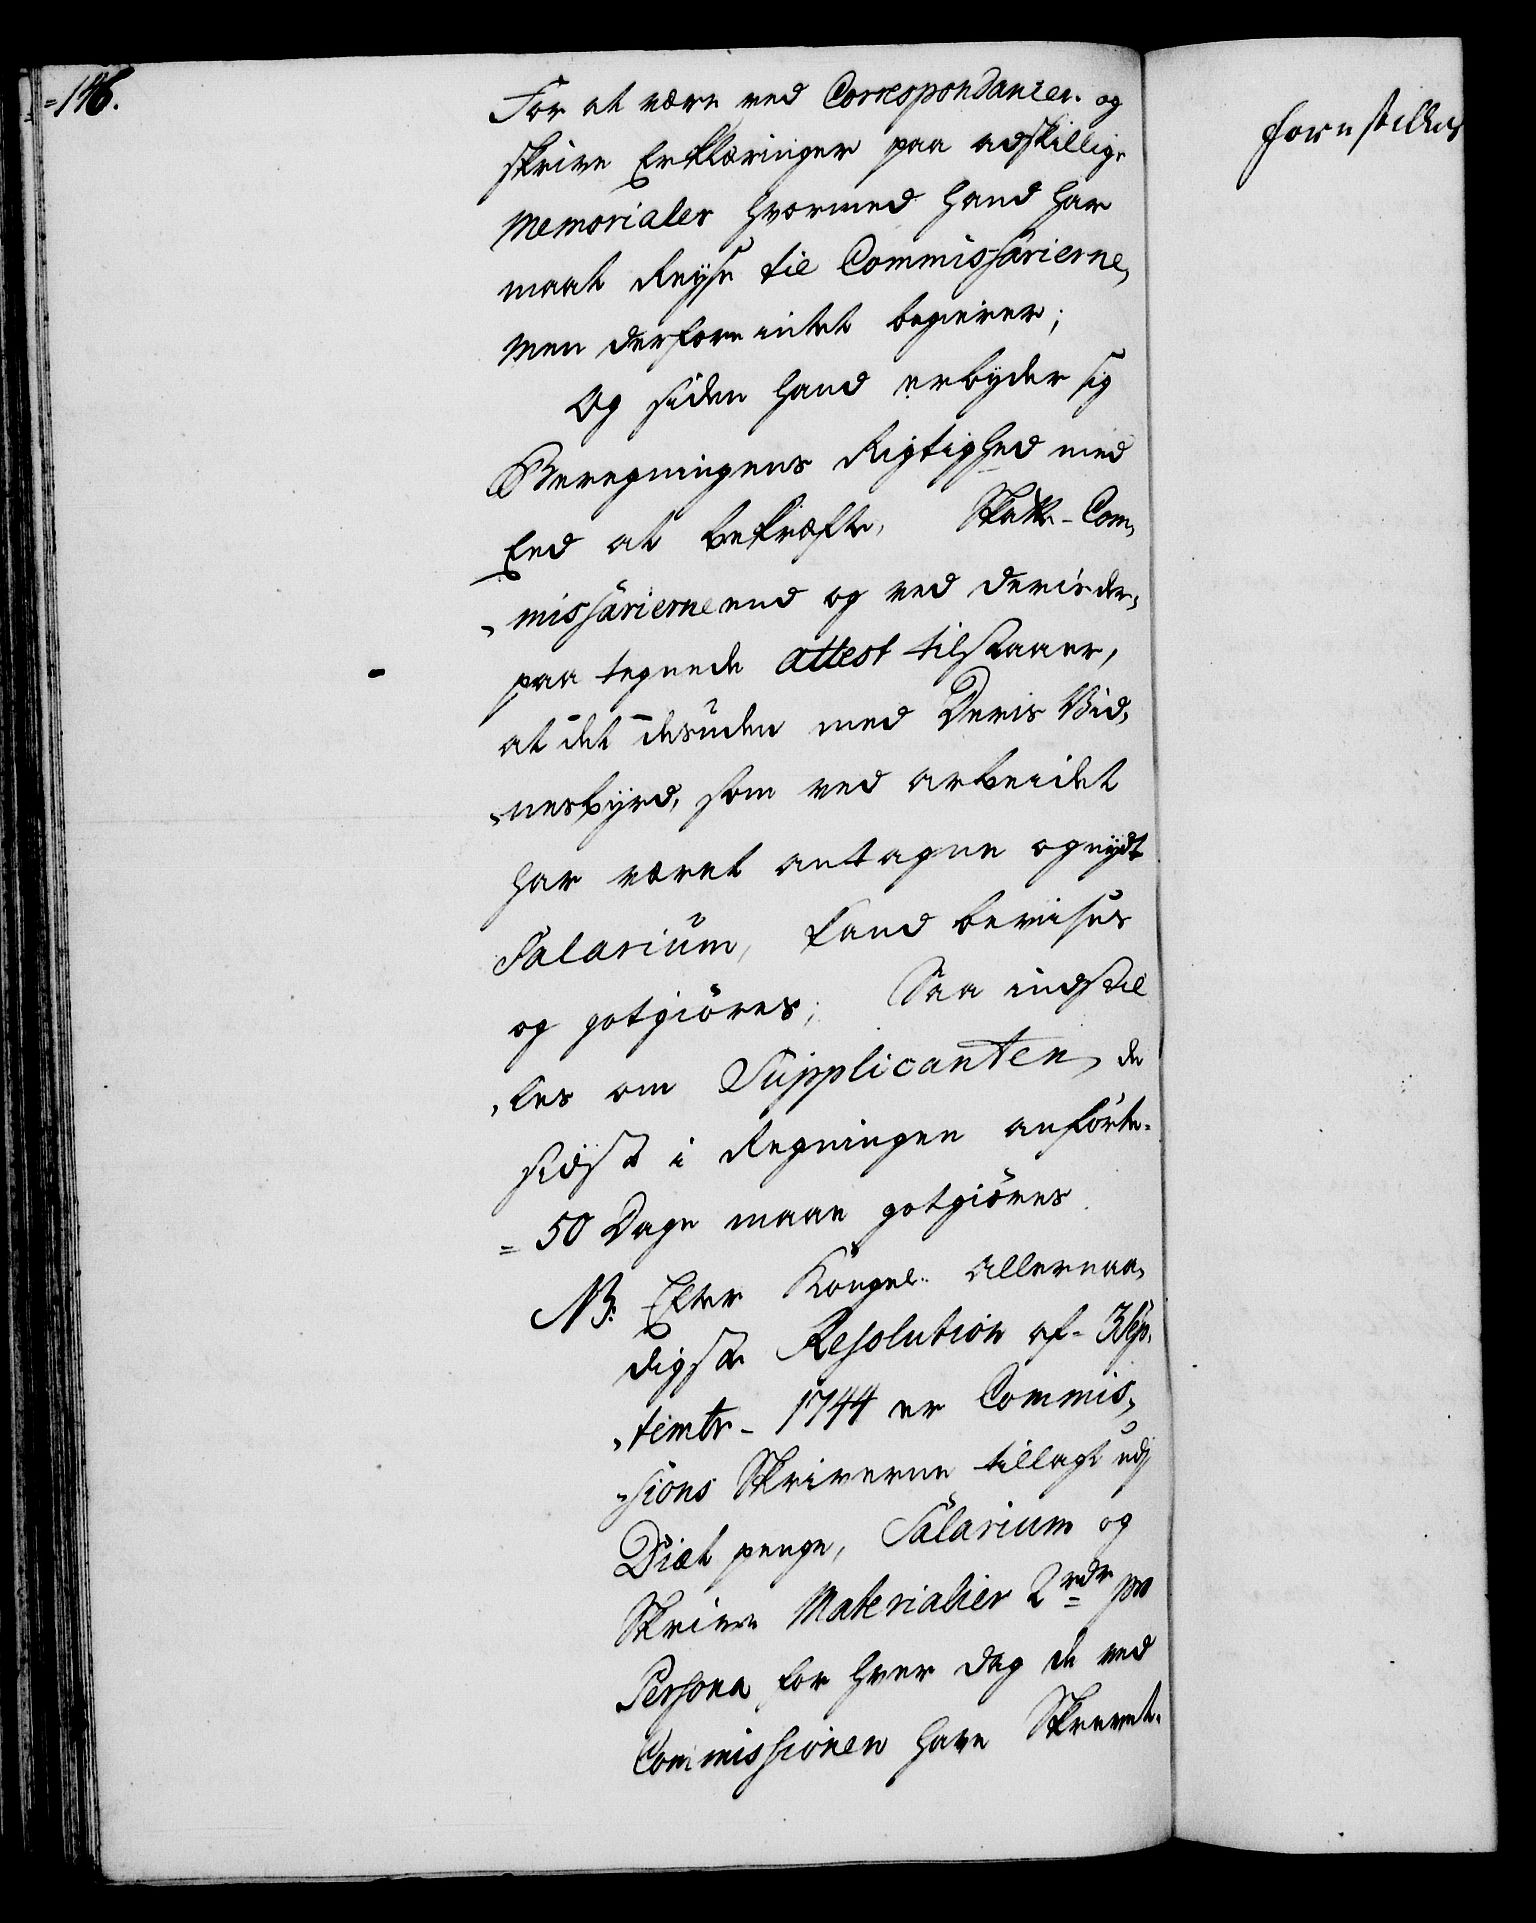 =146.
For at være ved Correspondancer og
skrive Erklæringer paa adskillige
Memorialer hvormed hand har
maat Reyse til Commissarierne,
Men derfore intet begierer;
Og siden hand erbyder sig
Beregningens Rigtighed med
Eed at bekræfte, Skatte-Com,
,,missarierne end og ved deris der,
paa tegnede Attest tilstaaer,
at det desuden med Deris Vid,
,,nesbyrd, som ved arbeidet
har været antagne og nydt
Salarium, kand bevises
og gotgiöres; Saa indstil
,,les om Supplicanten, de
sidst i Regningen anförte
=50 Dage maae gotgiöres.
NB. Efter Kongel. Allernaa,
digste Resolution af 3 Sep,
,,tembr. 1744 er Commis,
,,sions Skriverne tillagt udj
Diæt penge, Salarium og
Skrive Materialier 2 rdr pro
Persona for hver dag de ved
Commissionen have Skrevet.
forestilles